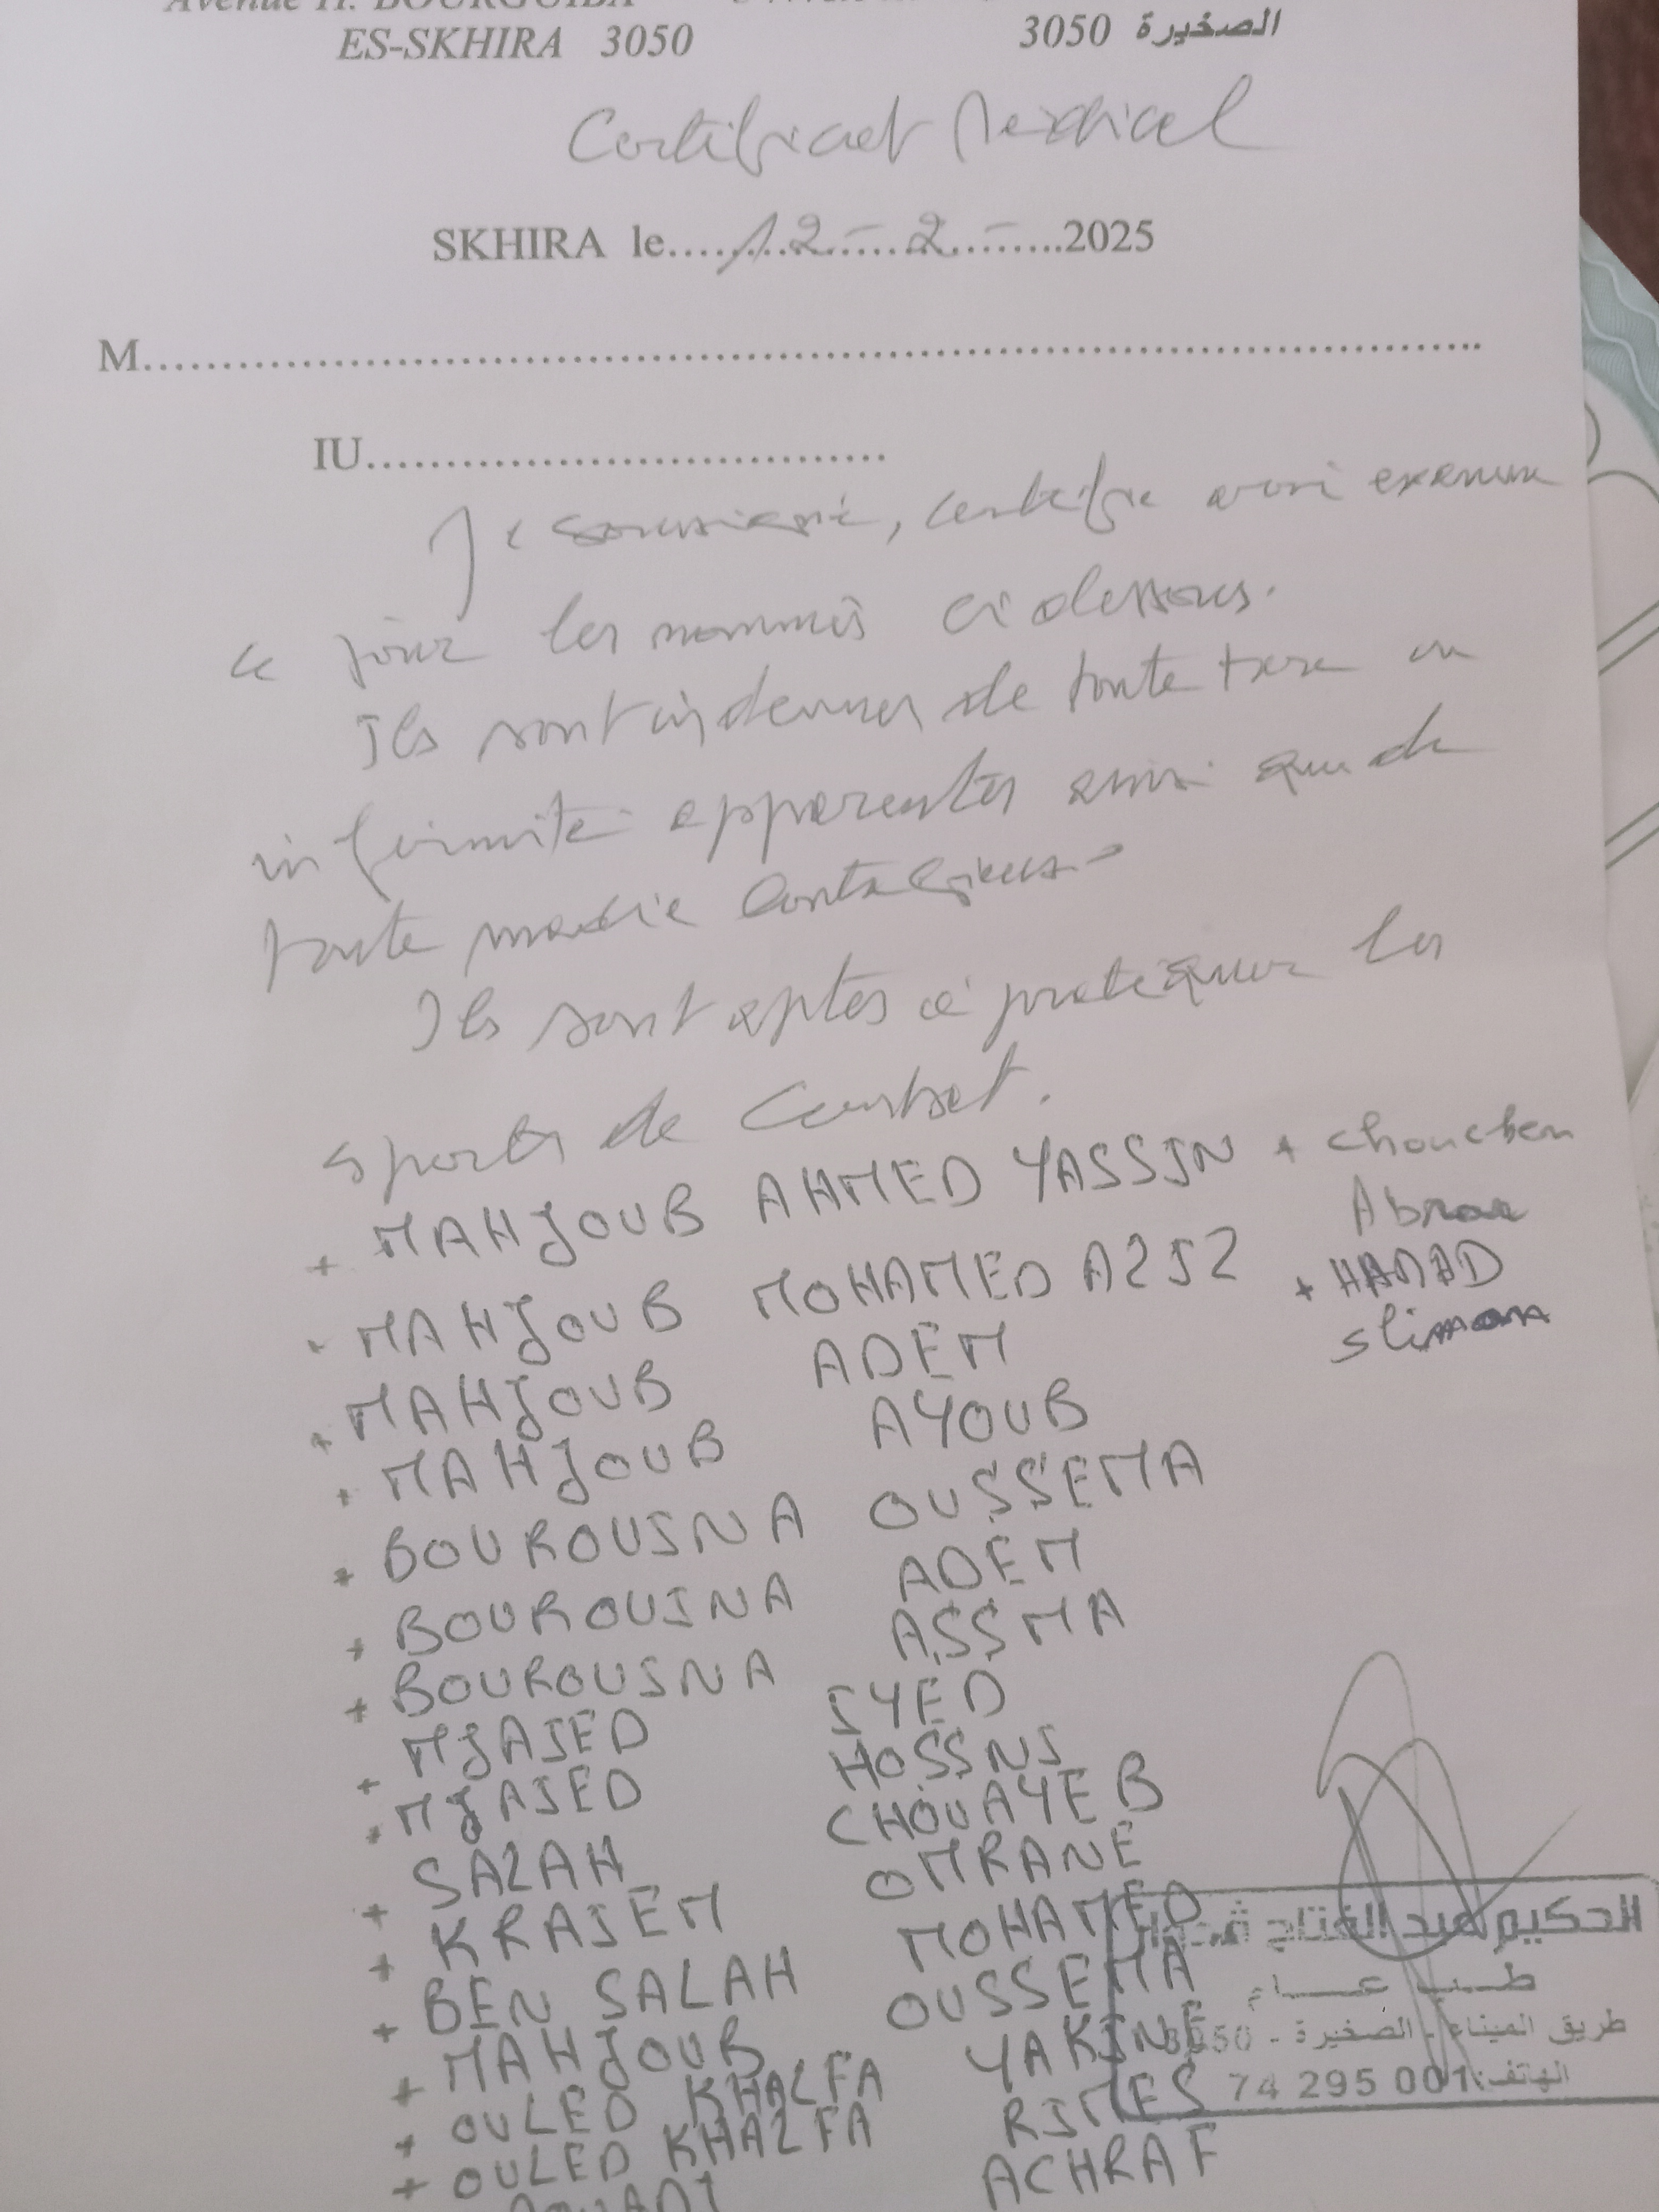 Avenue H. BOURGUIBA
ES-SKHIRA 3050
3050 الصخيرة
Certificat Medical
SKHIRA le.....12-...2.-.....2025
M........................................................................................
IU..................................
Je soussigné, certifie avoir examiné
ce jour les nommés ci dessous.
Ils sont indemnes de toute tare ou
infirmité apparentes ainsi que de
toute maladie contagieuse
Ils sont aptes à pratiquer les
sports de Combat.
+ MAHJOUB AHMED YASSIN
+ chouchen
Abrar
- MAHJOUB MOHAMED AZIZ
+ HAMAD
slimann
+ MAHJOUB ADEM
+ MAHJOUB AYOUB
+ BOUROUINA OUSSEMA
+ BOUROUINA ADEM
+ BOUROUINA ASSMA
+ MJAIED IYED
+ MJAIED HOSSNI
+ SALAH CHOUAYEB
+ KRAIEM OMRANE
+ BEN SALAH MOHAMED
+ MAHJOUB OUSSEMA
+ OULED KHALFA YAKINE
+ OULED KHALFA RIMES
ACHRAF
الحكيم عبد الفتاح
طب عام
طريق الميناء - الصخيرة - 3050
الهاتف: 74 295 001